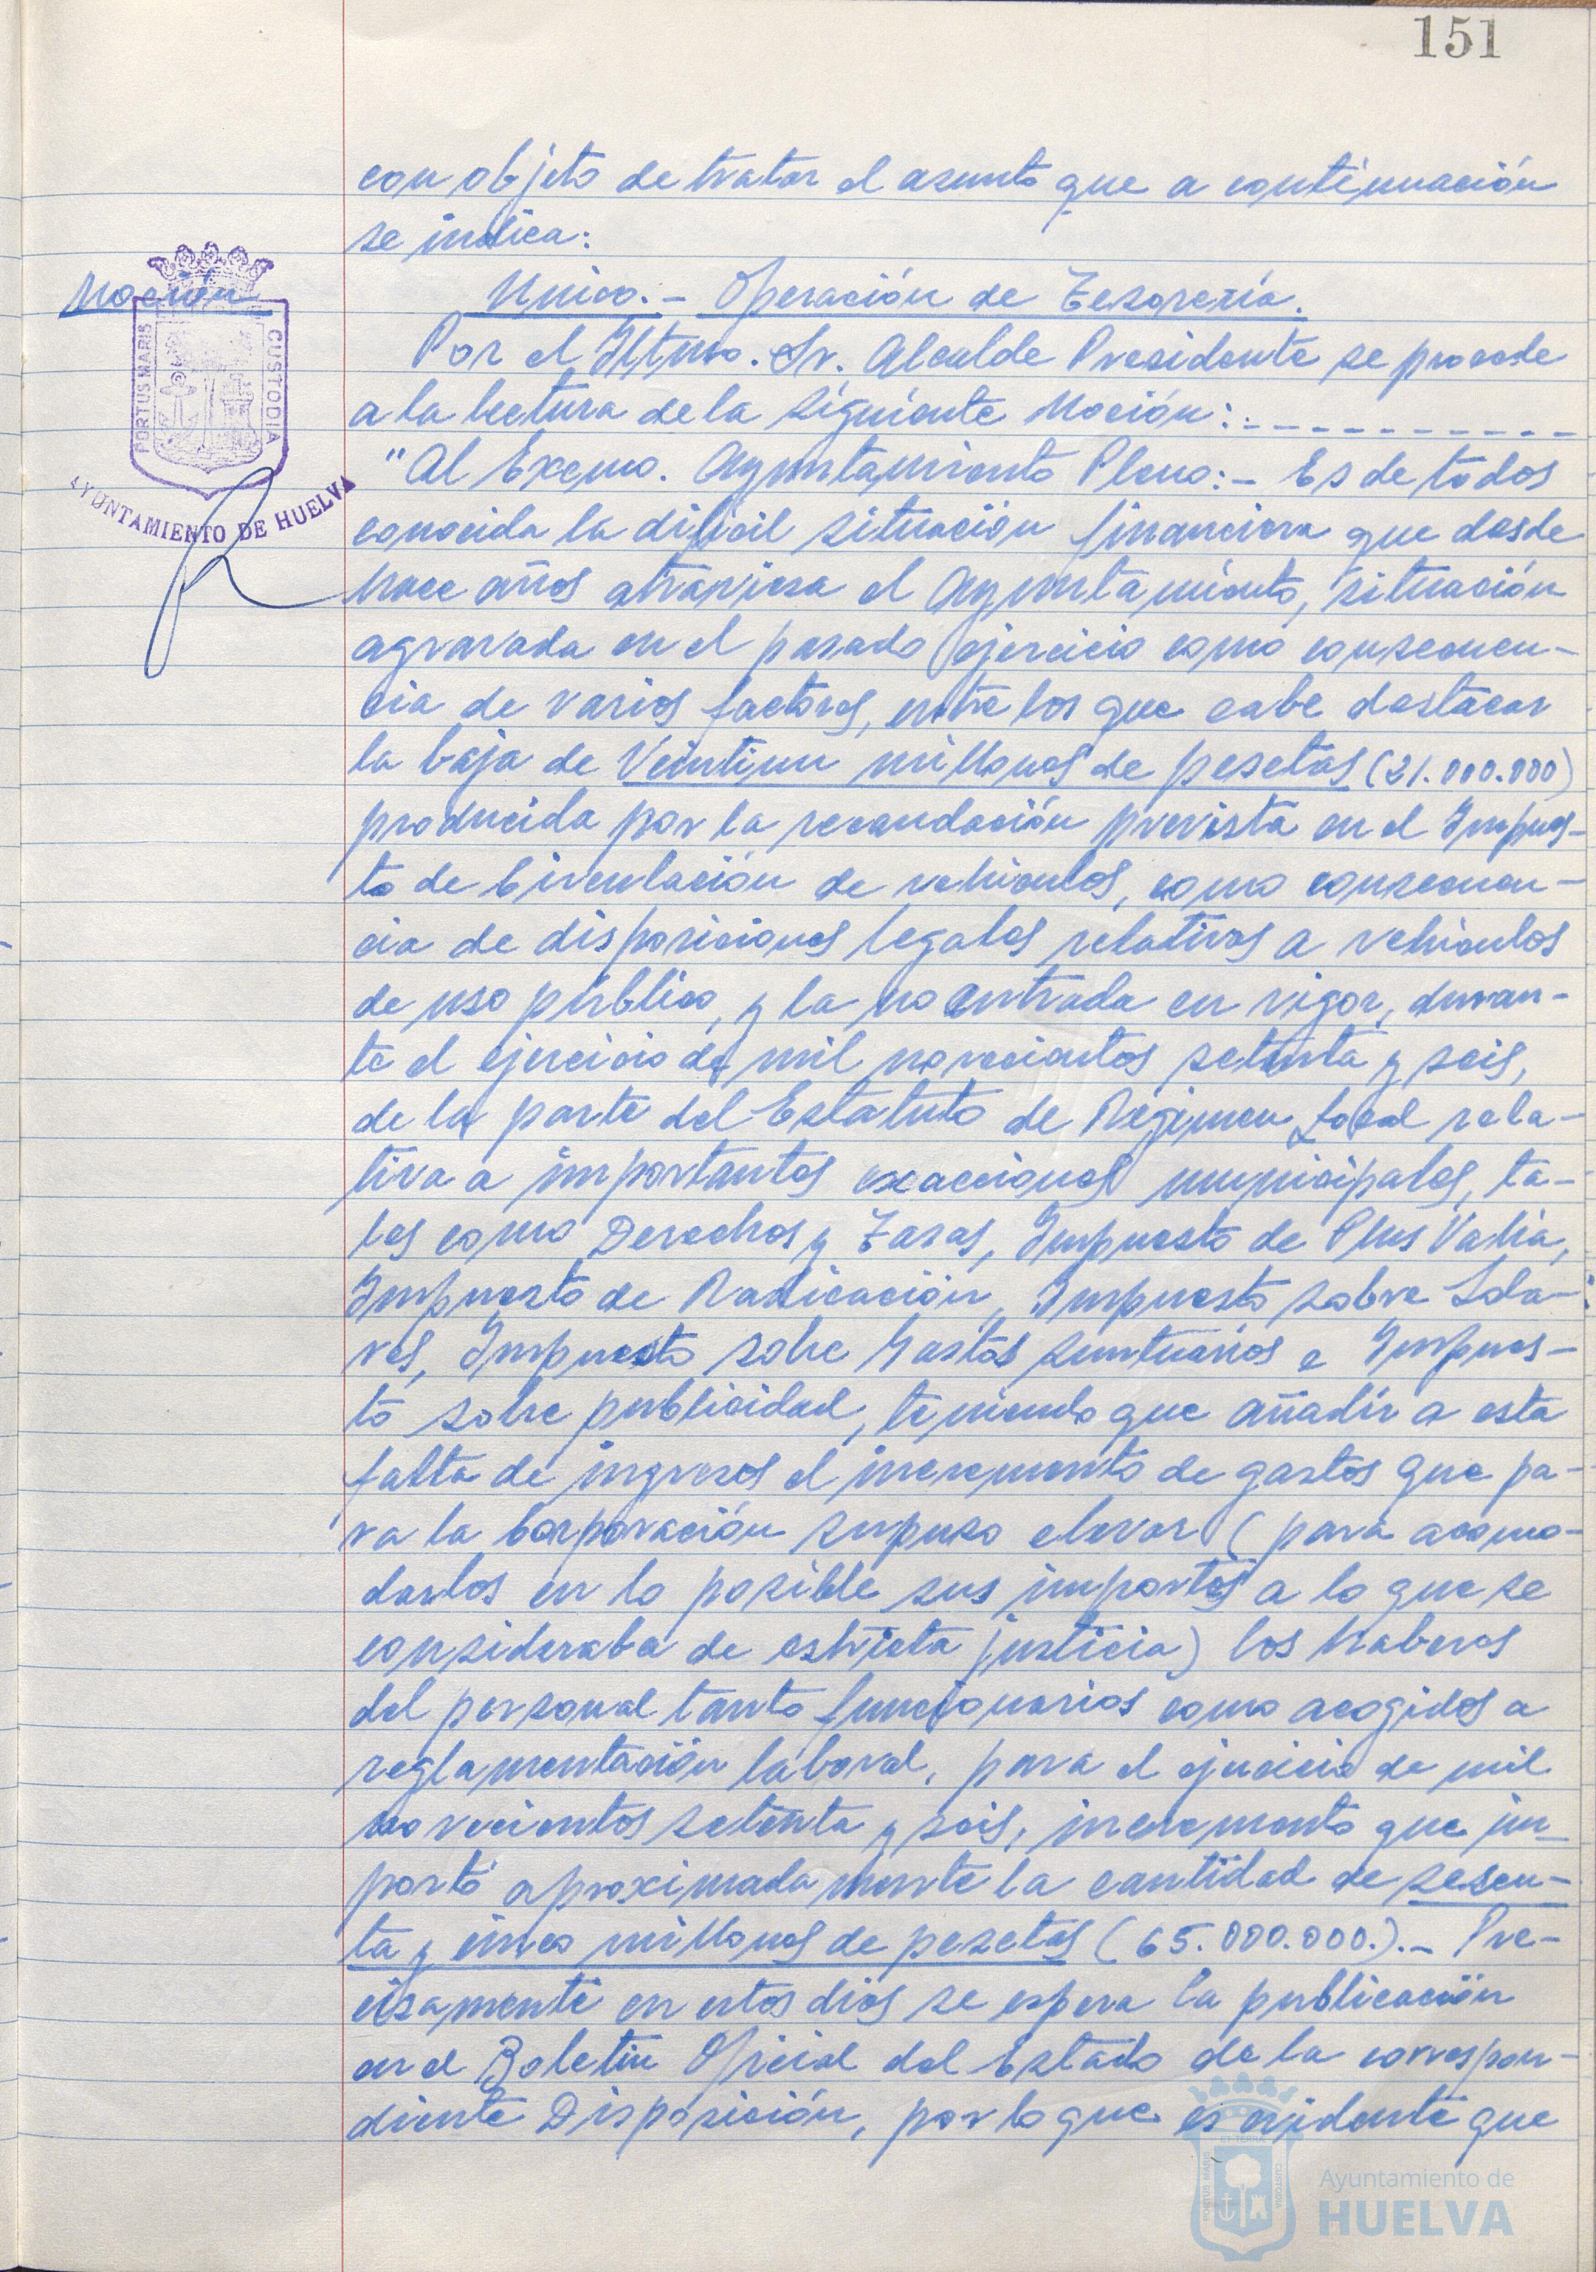 151
con objeto de tratar el asunto que a continuación
se indica:
Moción
Unico.- Operación de Tesorería.
Por el Iltmo. Sr. Alcalde Presidente se procede
a la lectura de la siguiente Moción:.- - - - - - - - - -
PORTUS MARIS
CUSTODIA
AYUNTAMIENTO DE HUELVA
"Al Excmo. Ayuntamiento Pleno:- Es de todos
conocida la dificil situación financiera que desde
hace años atraviesa el Ayuntamiento, situación
agravada en el pasado ejercicio como consecuen-
cia de varios factores, entre los que cabe destacar
la baja de Veintiun millones de pesetas (21.000.000)
producida por la recaudación prevista en el Impues-
to de Circulación de vehiculos, como consecuen-
cia de disposiciones legales relativas a vehiculos
de uso público, y la no entrada en vigor, duran-
te el ejercicio de mil novecientos setenta y seis,
de la parte del Estatuto de Régimen Local rela-
tiva a importantes exacciones municipales, ta-
les como Derechos y Tasas, Impuesto de Plus Valía,
Impuesto de Radicación, Impuesto sobre Sola-
res, Impuesto sobre Gastos suntuarios e Impues-
to sobre publicidad, teniendo que añadir a esta
falta de ingresos el incremento de gastos que pa-
ra la Corporación supuso elevar (para acomo-
darlos en lo posible sus importes a lo que se
consideraba de estricta justicia) los haberes
del personal tanto funcionarios como acogidos a
reglamentación laboral, para el ejercicio de mil
novecientos setenta y seis, incremento que im-
portó aproximadamente la cantidad de sesen-
ta y cinco millones de pesetas (65.000.000.).- Pre-
cisamente en estos dias se espera la publicación
en el Boletin Oficial del Estado de la correspon-
diente Disposición, por lo que es evidente que
PORTUS MARIS
ET TERRA
CUSTODIA
Ayuntamiento de
HUELVA